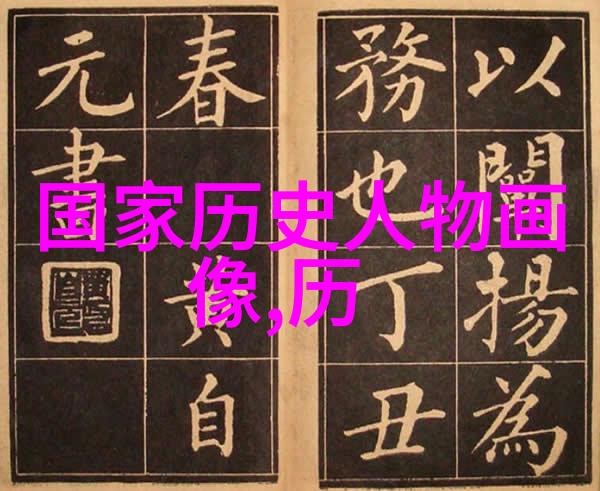 国家历史人物画
像,历
以闡揚為
務也丁丑
春黄自
元書